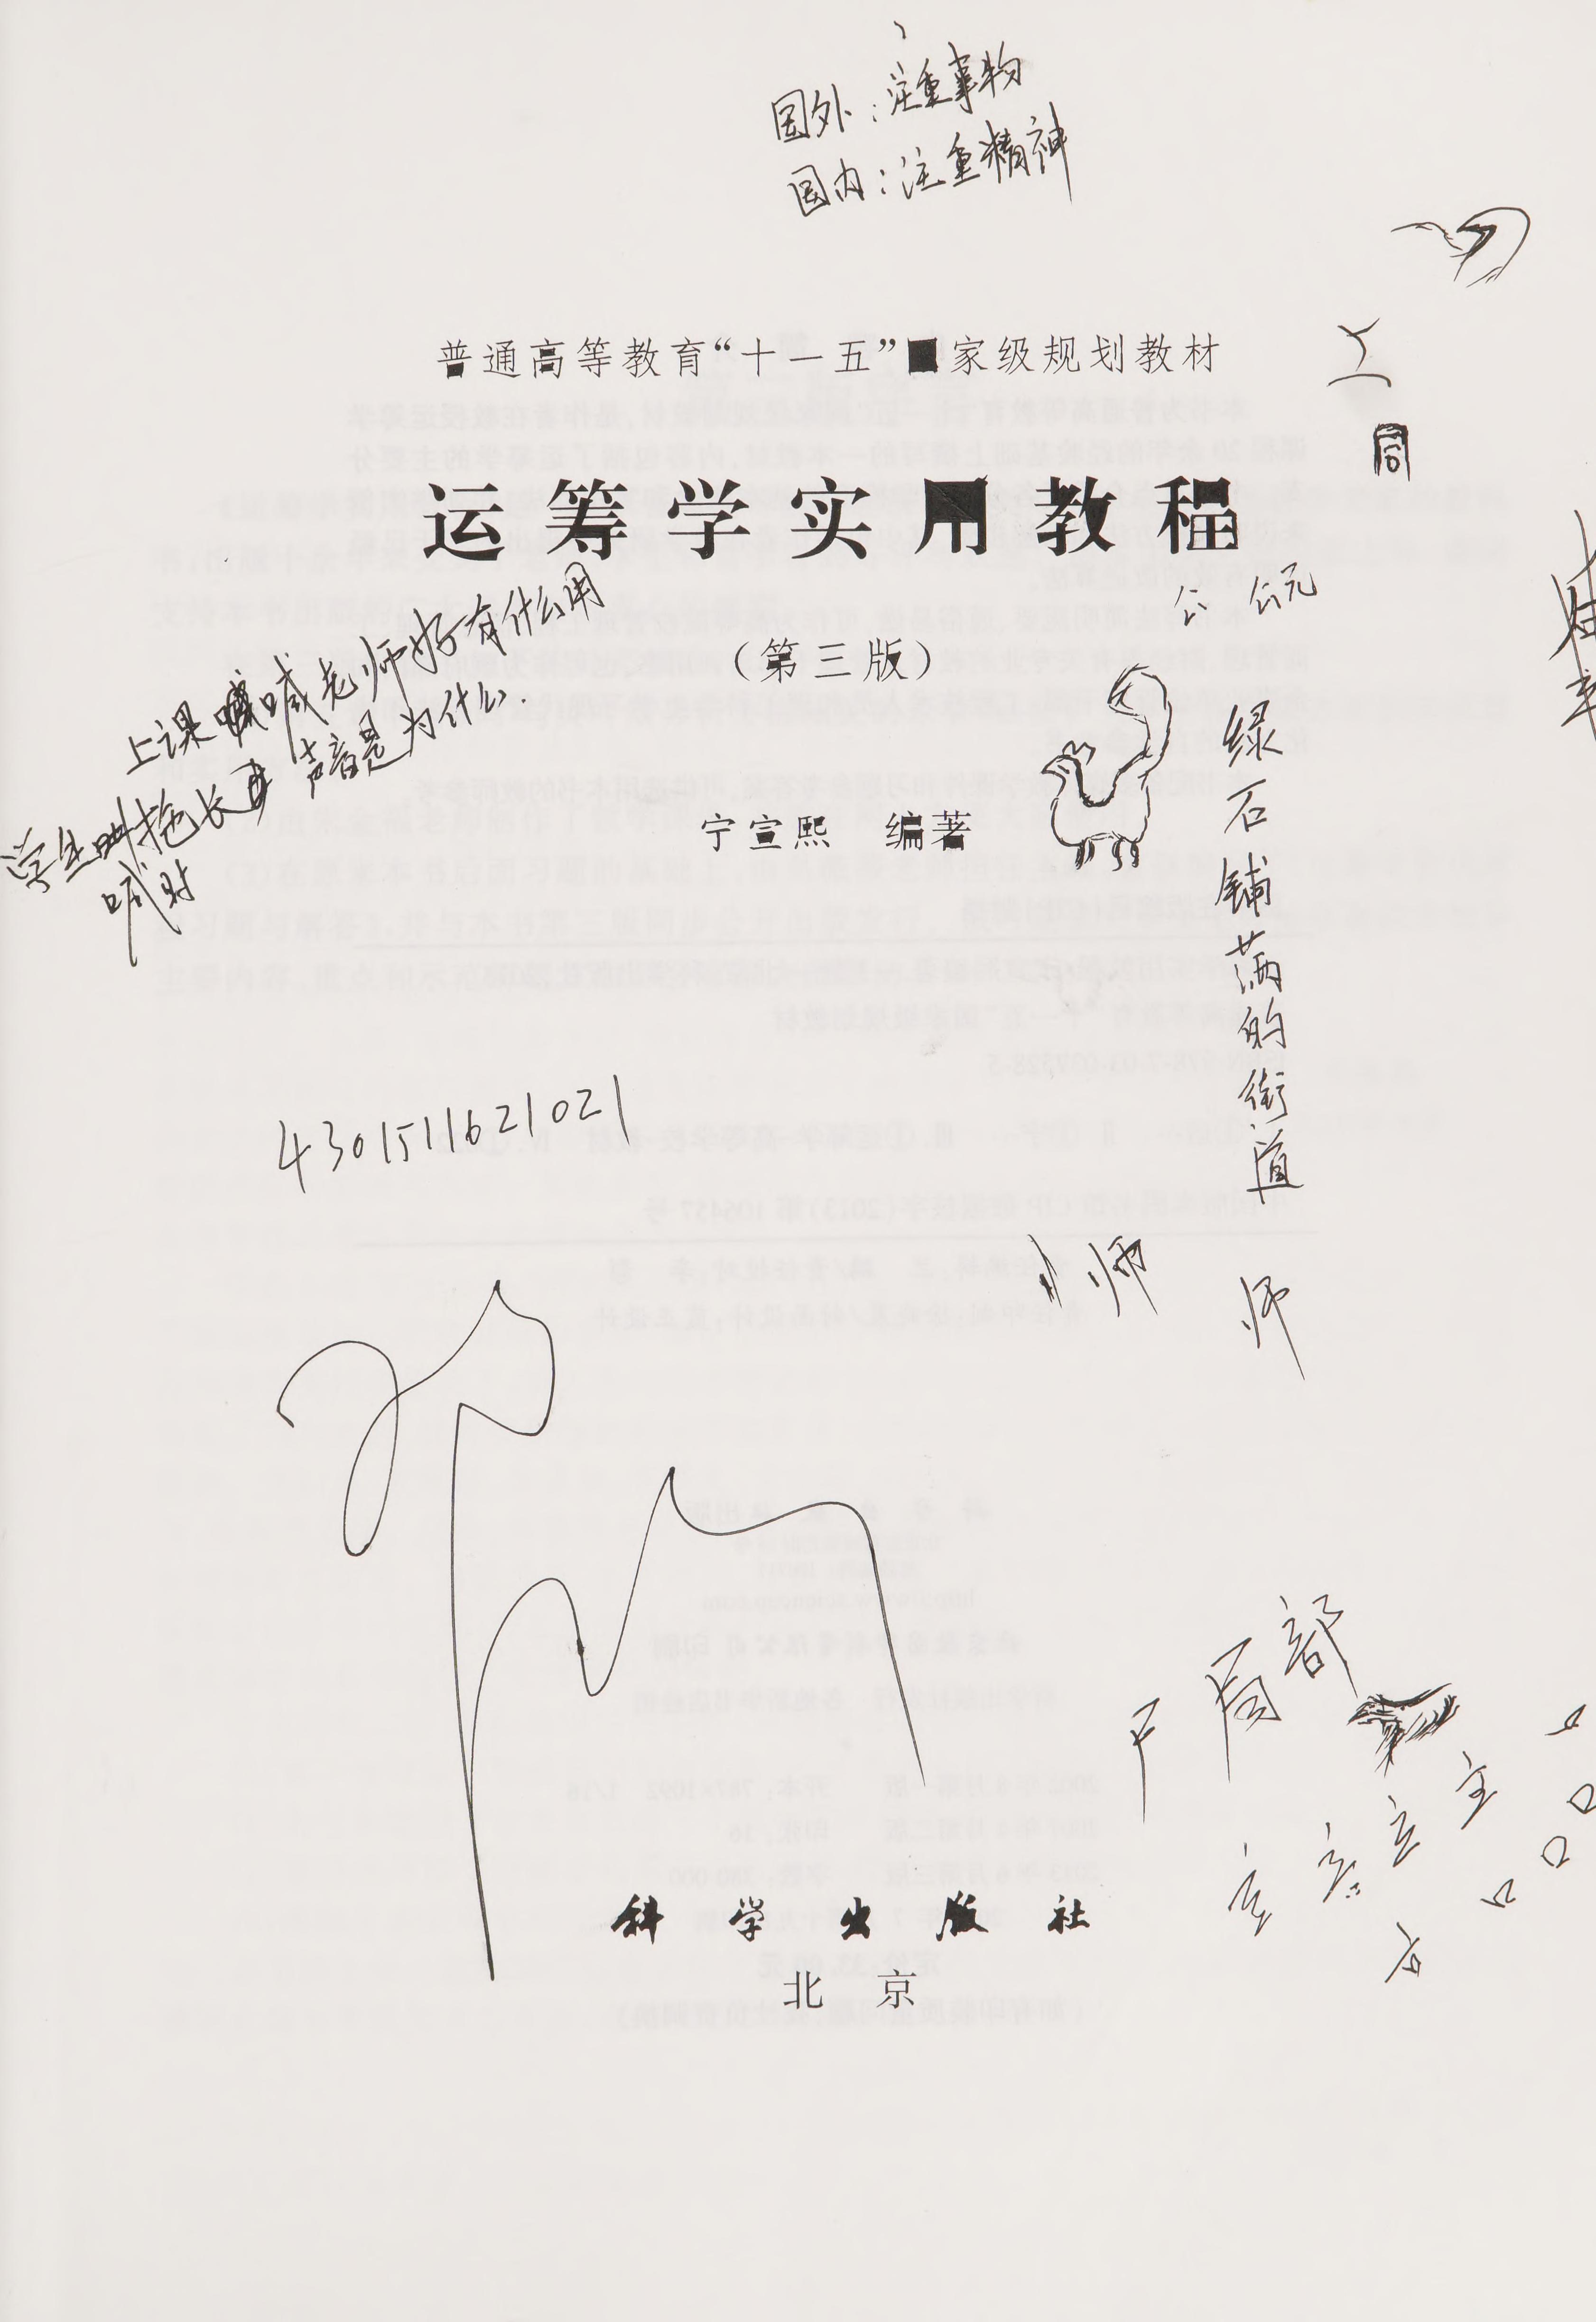 国外：注重事物
国内：注重精神
普通高等教育“十一五”国家级规划教材
运筹学实用教程
公 公元
上课喊老师好有什么用
（第三版）
学生叫拖长声音是为什么.
喊时
宁宣熙 编著
绿石铺满的街道
4301511621021
师
师
部
局
科学出版社
北京